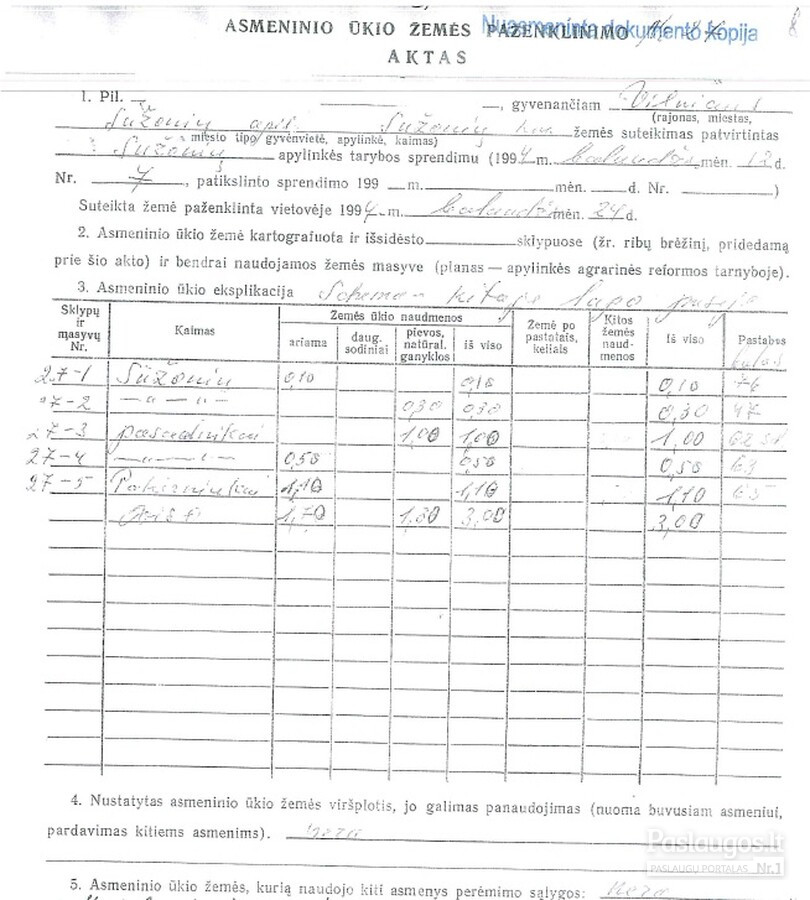 ASMENINIO ŪKIO ŽEMĖS PAŽENKLINIMO
Nuasmeninta dokumento kopija
AKTAS
1. Pil. —, gyvenančiam Vilniaus
(rajonas, miestas,
Sužonių apil. Sužonių žemės suteikimas patvirtintas
miesto tipo gyvenvietė, apylinkė, kaimas)
Sužonių apylinkės tarybos sprendimu (1994 m. balandžio mėn. 12 d.
Nr. 7, patikslinto sprendimo 199 m. mėn. d. Nr. )
Suteikta žemė paženklinta vietovėje 1994 m. balandžio mėn. 24 d.
2. Asmeninio ūkio žemė kartografuota ir išsidėsto sklypuose (žr. ribų brėžinį, pridedamą
prie šio akto) ir bendrai naudojamos žemės masyve (planas — apylinkės agrarinės reformos tarnyboje).
3. Asmeninio ūkio eksplikacija Schema - kitoje lapo pusėje
Sklypų ir masyvų Nr. Kaimas Žemės ūkio naudmenos Žemė po pastatais, keliais Kitos žemės naudmenos Iš viso Pastabos
ariama daug. sodiniai pievos, natūral. ganyklos iš viso
27-1 Sužonių 0,10 0,10 0,10 76
27-2 — „ — 0,30 0,30 0,30 47
27-3 1,00 1,00 1,00
27-4 — „ — 0,50 0,50 0,50 63
27-5 1,10 1,10 1,10 65
Iš viso 1,70 1,30 3,00 3,00
4. Nustatytas asmeninio ūkio žemės viršplotis, jo galimas panaudojimas (nuoma buvusiam asmeniui,
pardavimas kitiems asmenims). nėra
Paslaugos.lt
PASLAUGŲ PORTALAS Nr.1
5. Asmeninio ūkio žemės, kurią naudojo kiti asmenys perėmimo sąlygos: nėra